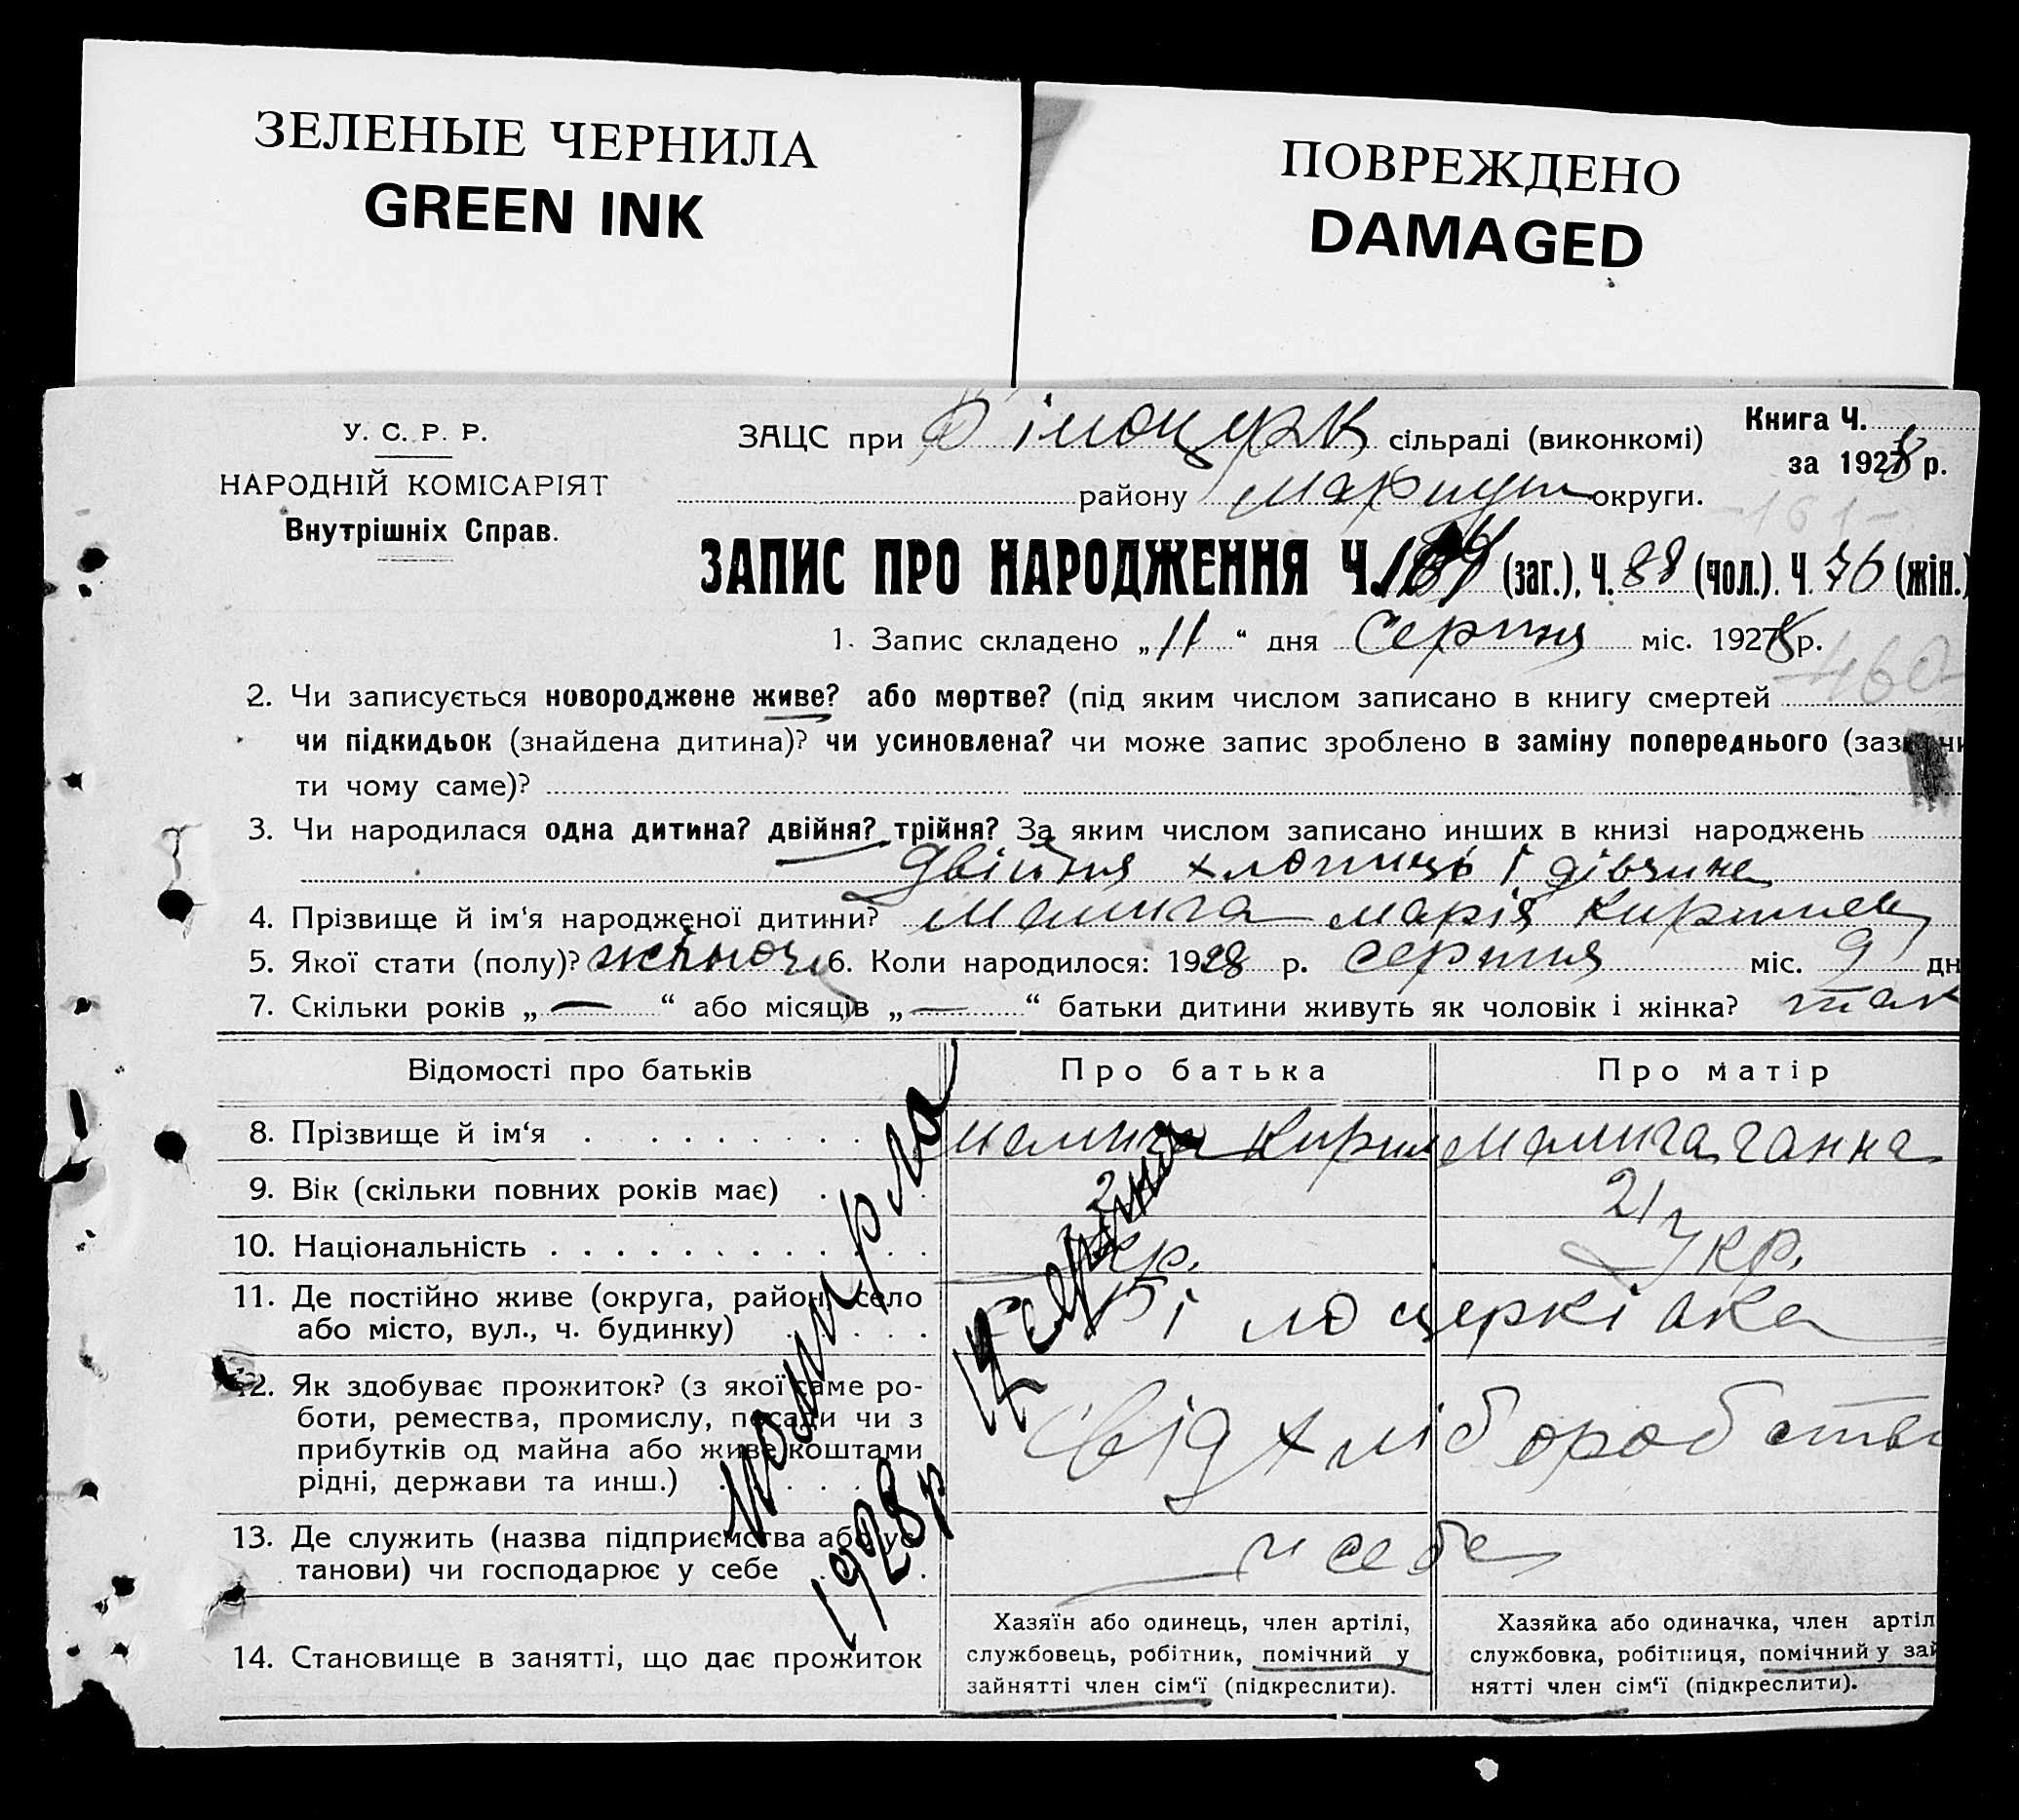 ЗЕЛЕНЫЕ ЧЕРНИЛА
GREEN INK
ПОВРЕЖДЕНО
DAMAGED
У. С. Р. Р.
НАРОДНІЙ КОМІСАРІЯТ
Внутрішніх Справ.
ЗАЦС при Білоцерк сільраді (виконкомі)
Книга Ч.
за 1928 р.
району Маріуп округи.
-161-
ЗАПИС ПРО НАРОДЖЕННЯ Ч. (заг.), Ч. 88 (чол.). Ч. 76 (жін.)
1. Запис складено „11“ дня Серпня міс. 1928 р.
460
2. Чи записується новороджене живе? або мертве? (під яким числом записано в книгу смертей
чи підкидьок (знайдена дитина)? чи усиновлена? чи може запис зроблено в заміну попереднього (зазначи
ти чому саме)?
3. Чи народилася одна дитина? двійня? трійня? За яким числом записано инших в книзі народжень
двійня хлопиць і дівчина
4. Прізвище й ім‘я народженої дитини? Малига Марія Кирилов
5. Якої стати (полу)? жіночі 6. Коли народилося: 1928 р. серпня міс. 9 дн
7. Скільки років „—“ або місяців „—“ батьки дитини живуть як чоловік і жінка? так
Відомості про батьків
Про батька
Про матір
8. Прізвище й ім‘я
Малига Кирил
Малига Ганна
9. Вік (скільки повних років має)
21
10. Національність
Укр.
Укр.
11. Де постійно живе (округа, район, село
або місто, вул., ч. будинку)
с Білоцерківка
12. Як здобуває прожиток? (з якої саме ро-
боти, ремества, промислу, посади чи з
прибутків од майна або живе коштами
рідні, держави та инш.)
від хліборобства
13. Де служить (назва підприємства або ус-
танови) чи господарює у себе
у себе
14. Становище в занятті, що дає прожиток
Хазяїн або одинець, член артілі,
службовець, робітник, помічний у
зайнятті член сім‘ї (підкреслити).
Хазяйка або одиначка, член артіл
службовка, робітниця, помічний у зай
нятті член сім‘ї (підкреслити).
помирла
серпня
1928 р